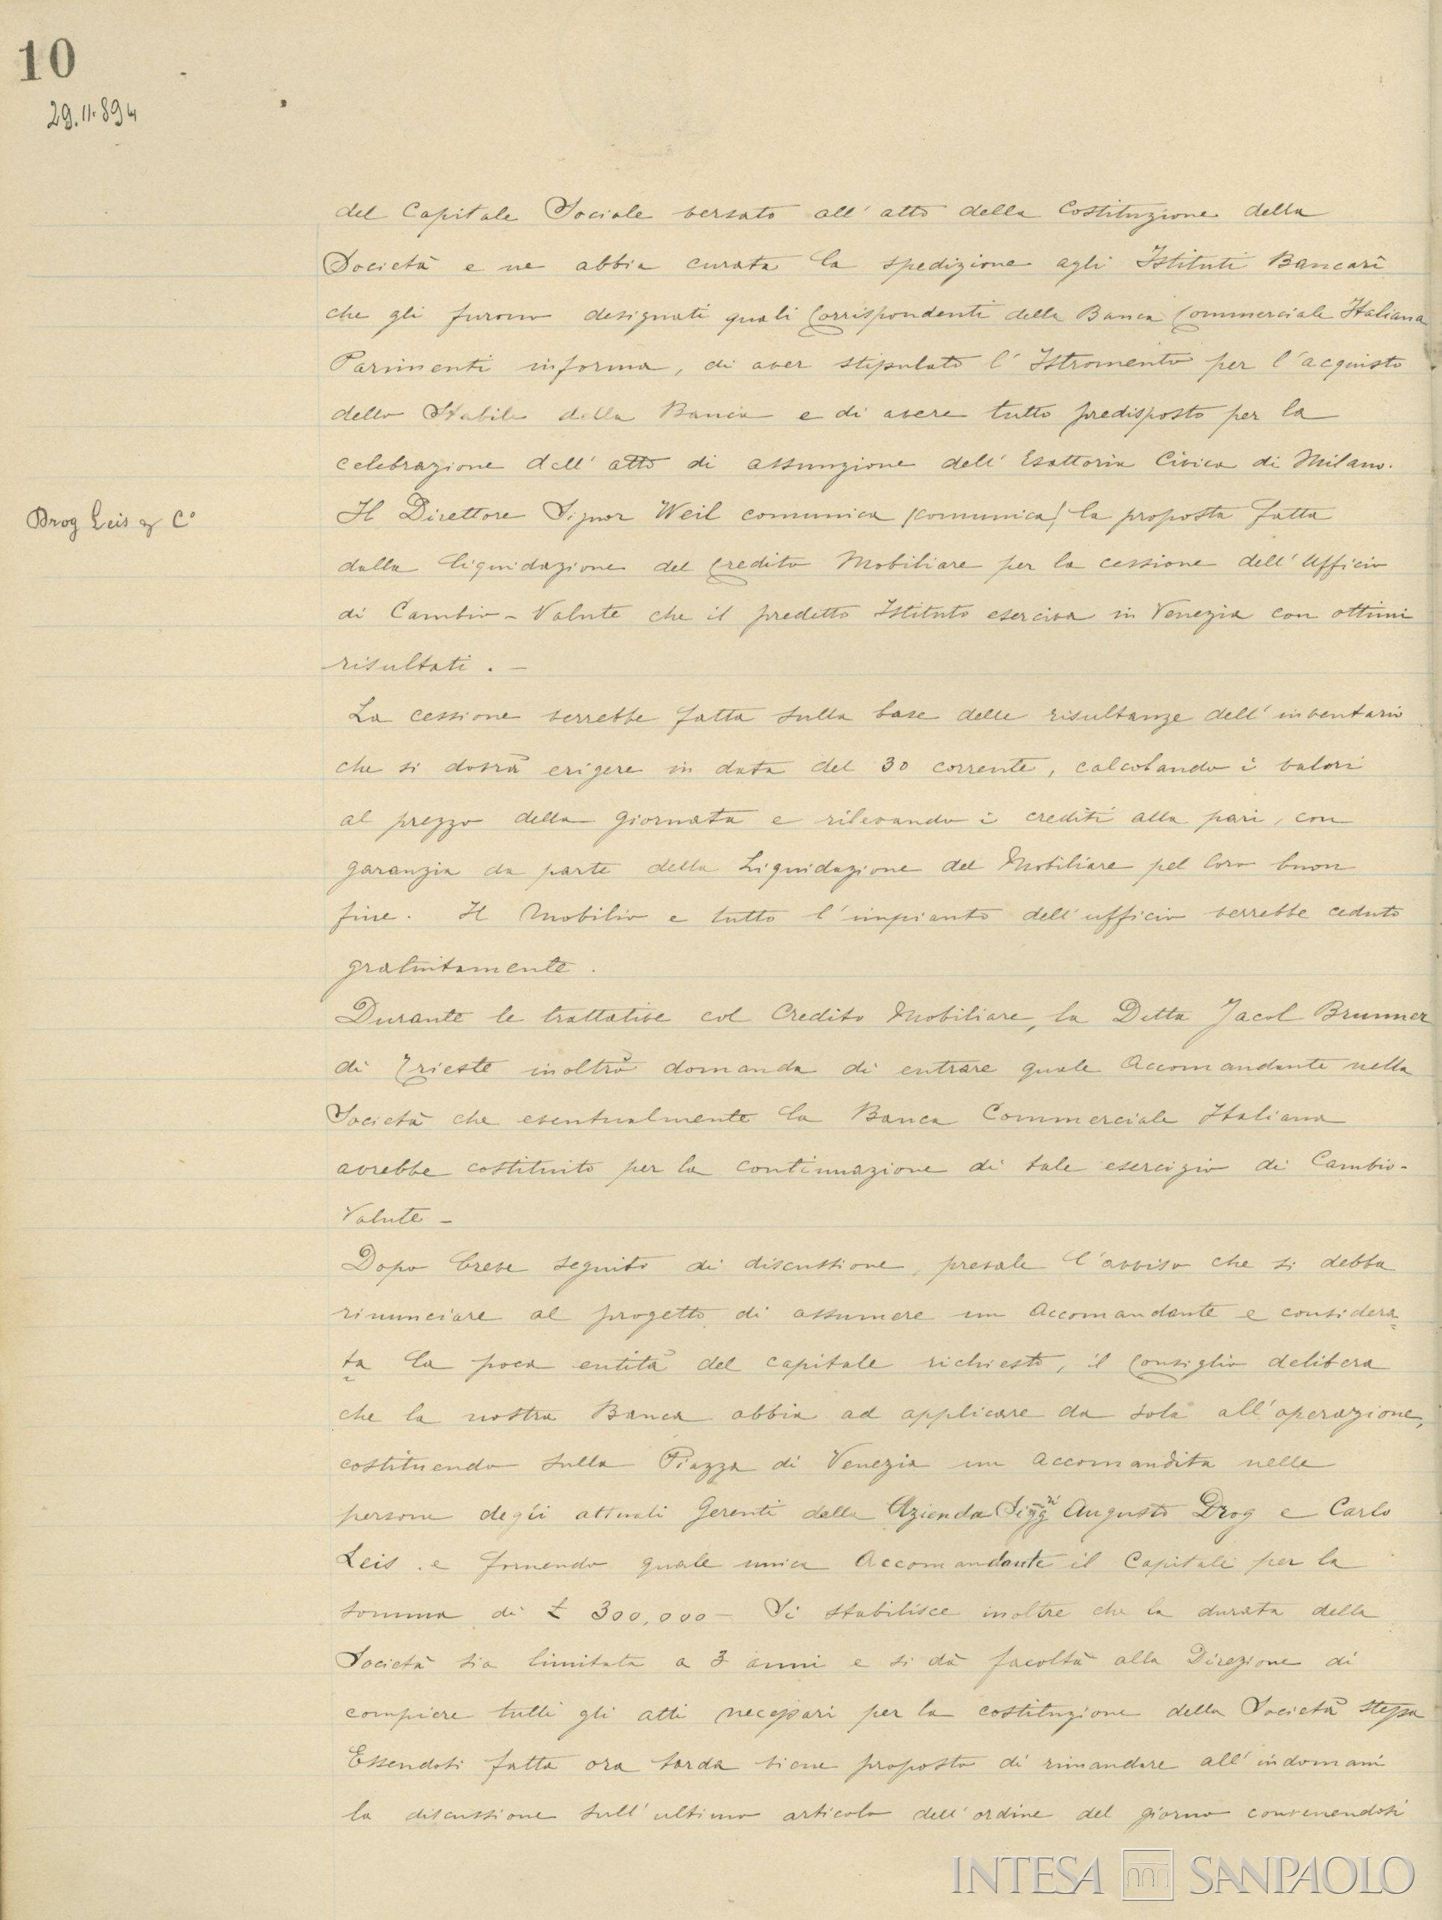 10
29.11.894
del Capitale Sociale versato all'atto della Costituzione della
Società e ne abbia curata la spedizione agli Istituti Bancari
che gli furono designati quali Corrispondenti della Banca Commerciale Italiana
Parimenti informa, di aver stipulato l'Istromento per l'acquisto
dello Stabile della Banca e di avere tutto predisposto per la
celebrazione dell'atto di assunzione dell'Esattoria Civica di Milano.
Drog Leis & Cº
Il Direttore Signor Weil comunica (comunica) la proposta fatta
dalla liquidazione del Credito Mobiliare per la cessione dell'Ufficio
di Cambio-Valute che il predetto Istituto eserciva in Venezia con ottimi
risultati. -
La cessione verrebbe fatta sulla base delle risultanze dell'inventario
che si dovrà erigere in data del 30 corrente, calcolando i valori
al prezzo della giornata e rilevando i crediti alla pari, con
garanzia da parte della Liquidazione del Mobiliare pel loro buon
fine. Il Mobilio e tutto l'impianto dell'ufficio verrebbe ceduto
gratuitamente.
Durante le trattative col Credito Mobiliare, la Ditta Jacol Brunner
di Trieste inoltrò domanda di entrare quale Accomandante nella
Società che eventualmente la Banca Commerciale Italiana
avrebbe costituito per la continuazione di tale esercizio di Cambio-
Valute -
Dopo breve seguito di discussione, prevale l'avviso che si debba
rinunciare al progetto di assumere un Accomandante e considera-
ta la poca entità del capitale richiesto, il Consiglio delibera
che la nostra Banca abbia ad applicare da sola all'operazione,
costituendo sulla Piazza di Venezia un Accomandita nelle
persone degli attuali Gerenti della Azienda Sigg.ri Augusto Drog e Carlo
Leis. e fornendo quale unica Accomandante il Capitale per la
somma di £ 300,000 - Si stabilisce inoltre che la durata della
Società sia limitata a 3 anni e si dà facoltà alla Direzione di
compiere tutti gli atti necessari per la costituzione della Società stessa
Essendosi fatta ora tarda viene proposto di rimandare all'indomani
la discussione sull'ultimo articolo dell'ordine del giorno convenendosi
INTESA SANPAOLO